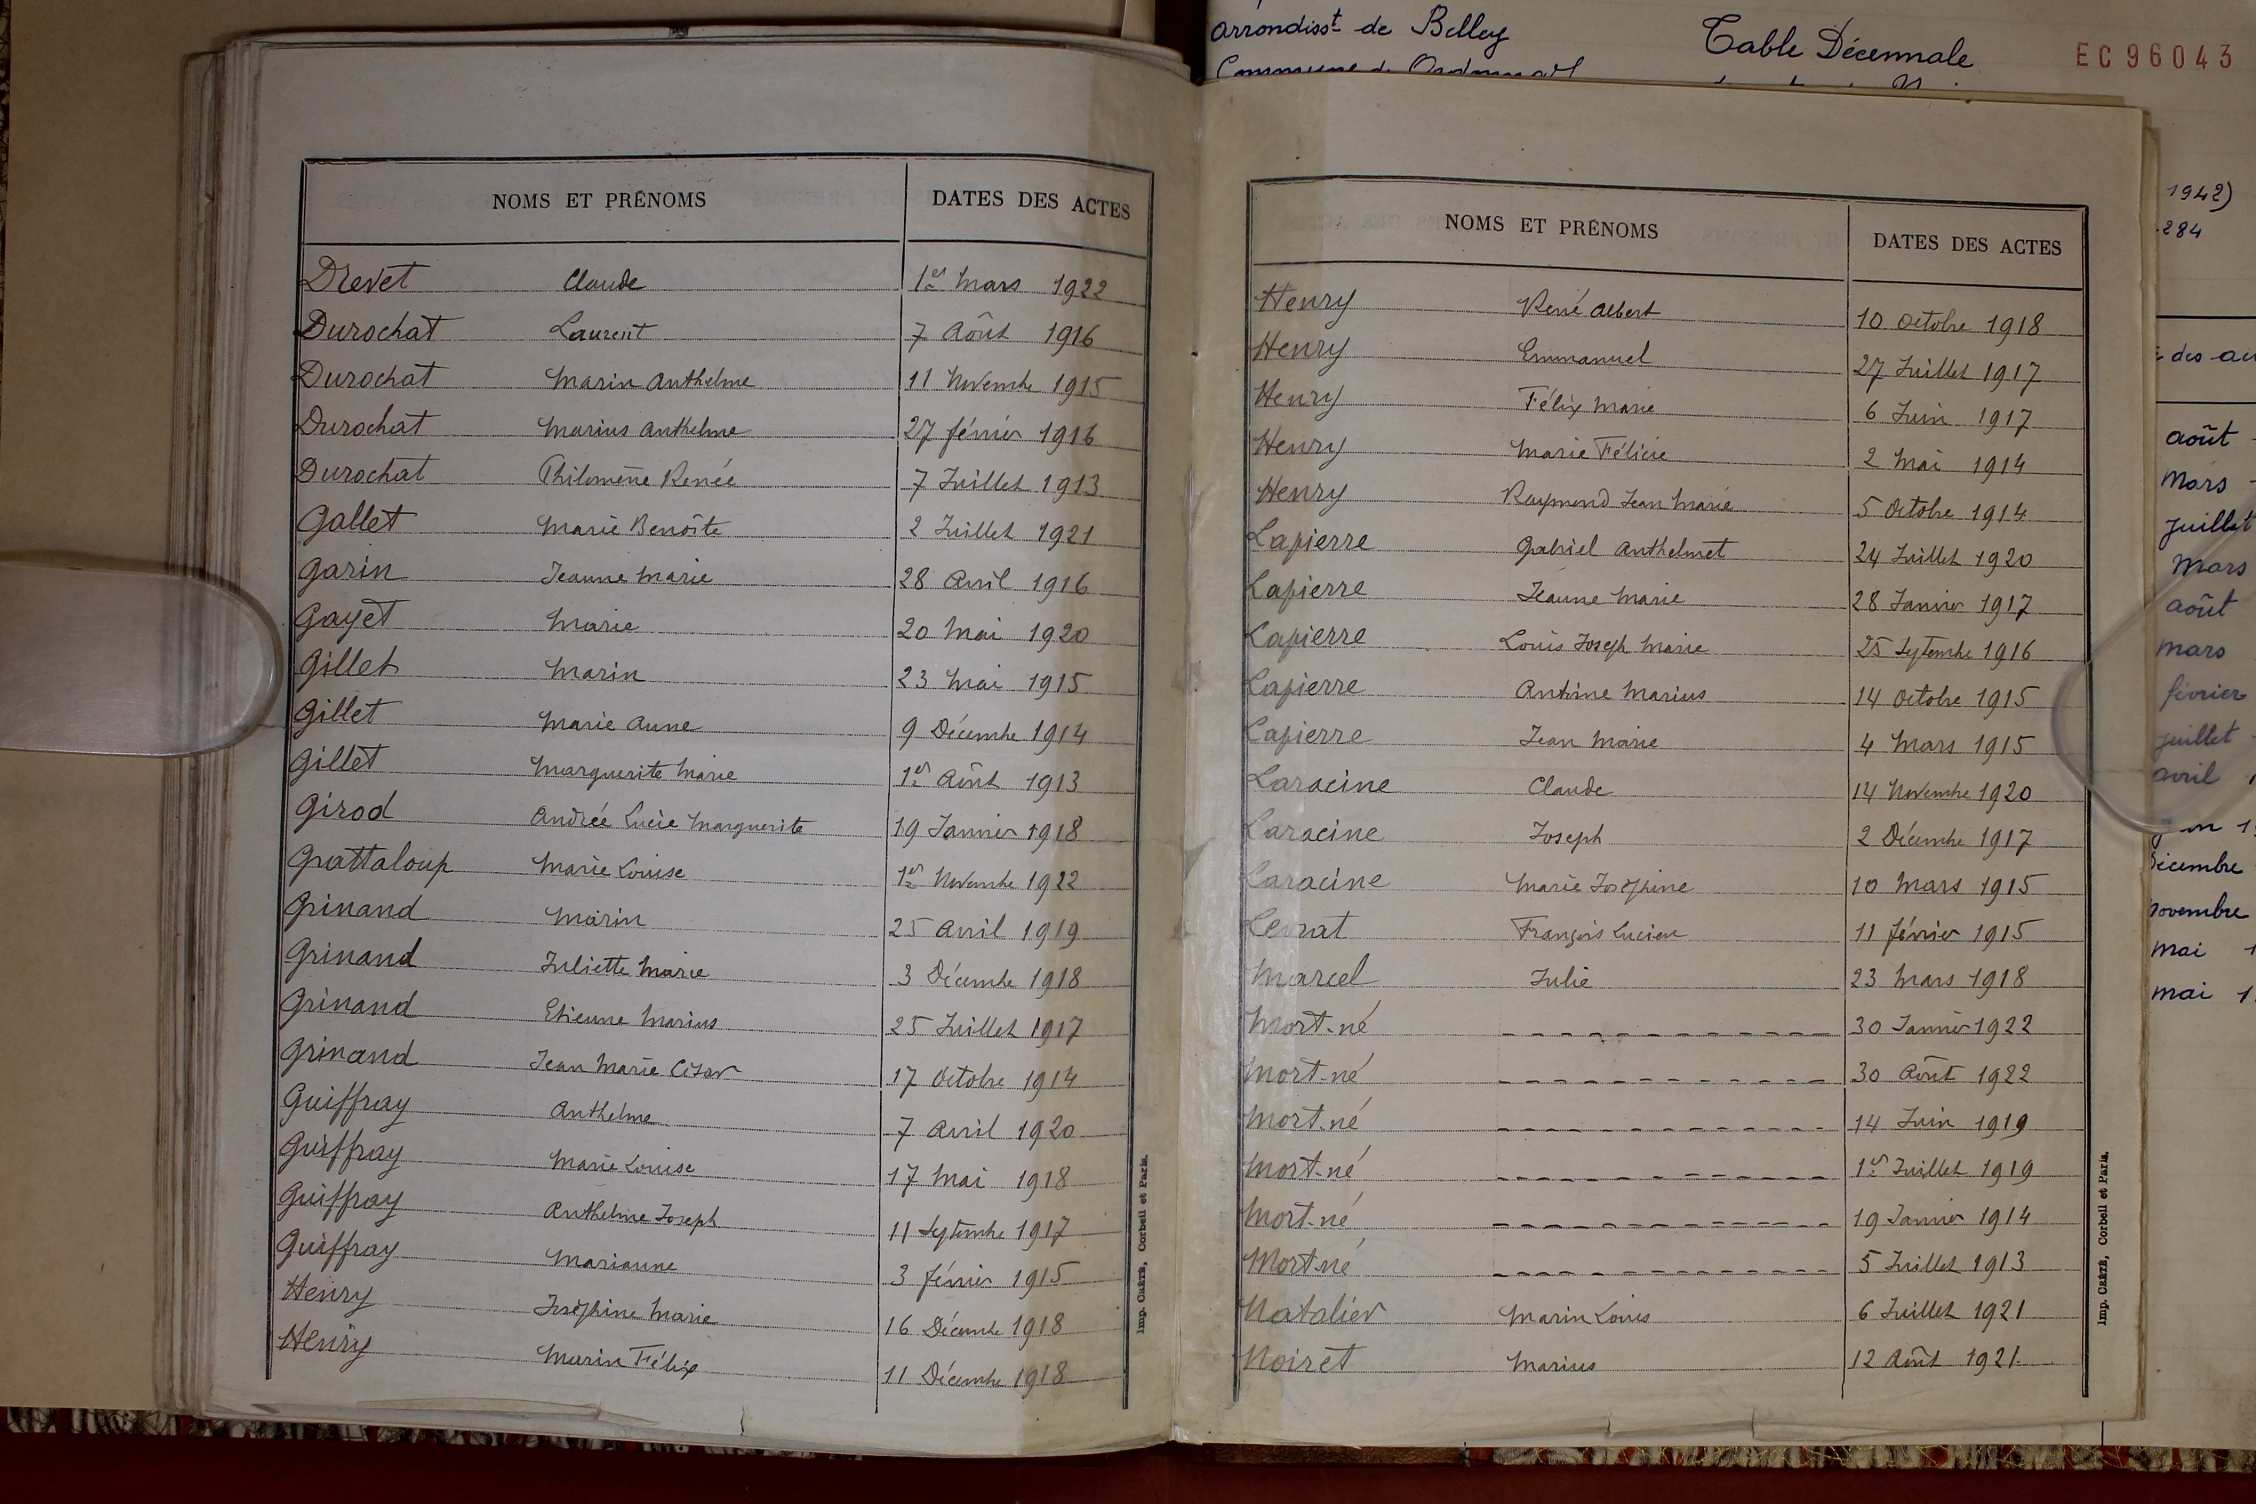 arrondisst de Belley
Table Décennale
EC96043
Commune de
1942)
284
NOMS ET PRÉNOMS DATES DES ACTES
Drevet Claude 1er Mars 1922
Durochat Laurent 7 Août 1916
Durochat Marin Anthelme 11 Novembre 1915
Durochat Marius Anthelme 27 février 1916
Durochat Philomène Renée 7 Juillet 1913
Gallet Marie Benoîte 2 Juillet 1921
Garin Jeanne Marie 28 Avril 1916
Gayet Marie 20 Mai 1920
Gillet Marin 23 Mai 1915
Gillet Marie Anne 9 Décembre 1914
Gillet Marguerite Marie 1er Août 1913
Girod Andrée Lucie Marguerite 19 Janvier 1918
Grattaloup Marie Louise 1er Novembre 1922
Grinand Marin 25 Avril 1919
Grinand Juliette Marie 3 Décembre 1918
Grinand Etienne Marius 25 Juillet 1917
Grinand Jean Marie César 17 Octobre 1914
Guiffray Anthelme 7 Avril 1920
Guiffray Marie Louise 17 Mai 1918
Guiffray Anthelme Joseph 11 Septembre 1917
Guiffray Marianne 3 février 1915
Henry Joséphine Marie 16 Décembre 1918
Henry Marin Félix 11 Décembre 1918
Imp. CRÉTÉ, Corbeil et Paris.
NOMS ET PRÉNOMS DATES DES ACTES
Henry René Albert 10 Octobre 1918
Henry Emmanuel 27 Juillet 1917
Henry Félix Marie 6 Juin 1917
Henry Marie Félicie 2 Mai 1914
Henry Raymond Jean Marie 5 Octobre 1914
Lapierre Gabriel Anthelmet 24 Juillet 1920
Lapierre Jeanne Marie 28 Janvier 1917
Lapierre Louis Joseph Marie 25 Septembre 1916
Lapierre Antoine Marius 14 Octobre 1915
Lapierre Jean Marie 4 Mars 1915
Laracine Claude 14 Novembre 1920
Laracine Joseph 2 Décembre 1917
Laracine Marie Joséphine 10 Mars 1915
Levrat François Lucien 11 février 1915
Marcel Julie 23 Mars 1918
Mort-né 30 Janvier 1922
Mort-né 30 Août 1922
Mort-né 14 Juin 1919
Mort-né 1er Juillet 1919
Mort-né 19 Janvier 1914
Mort-né 5 Juillet 1913
Natalier Marin Louis 6 Juillet 1921
Noiret Marius 12 Août 1921
Imp. CRÉTÉ, Corbeil et Paris.
des
août
Mars
juillet
Mars
août
mars
février
juillet
avril
décembre
novembre
mai
mai